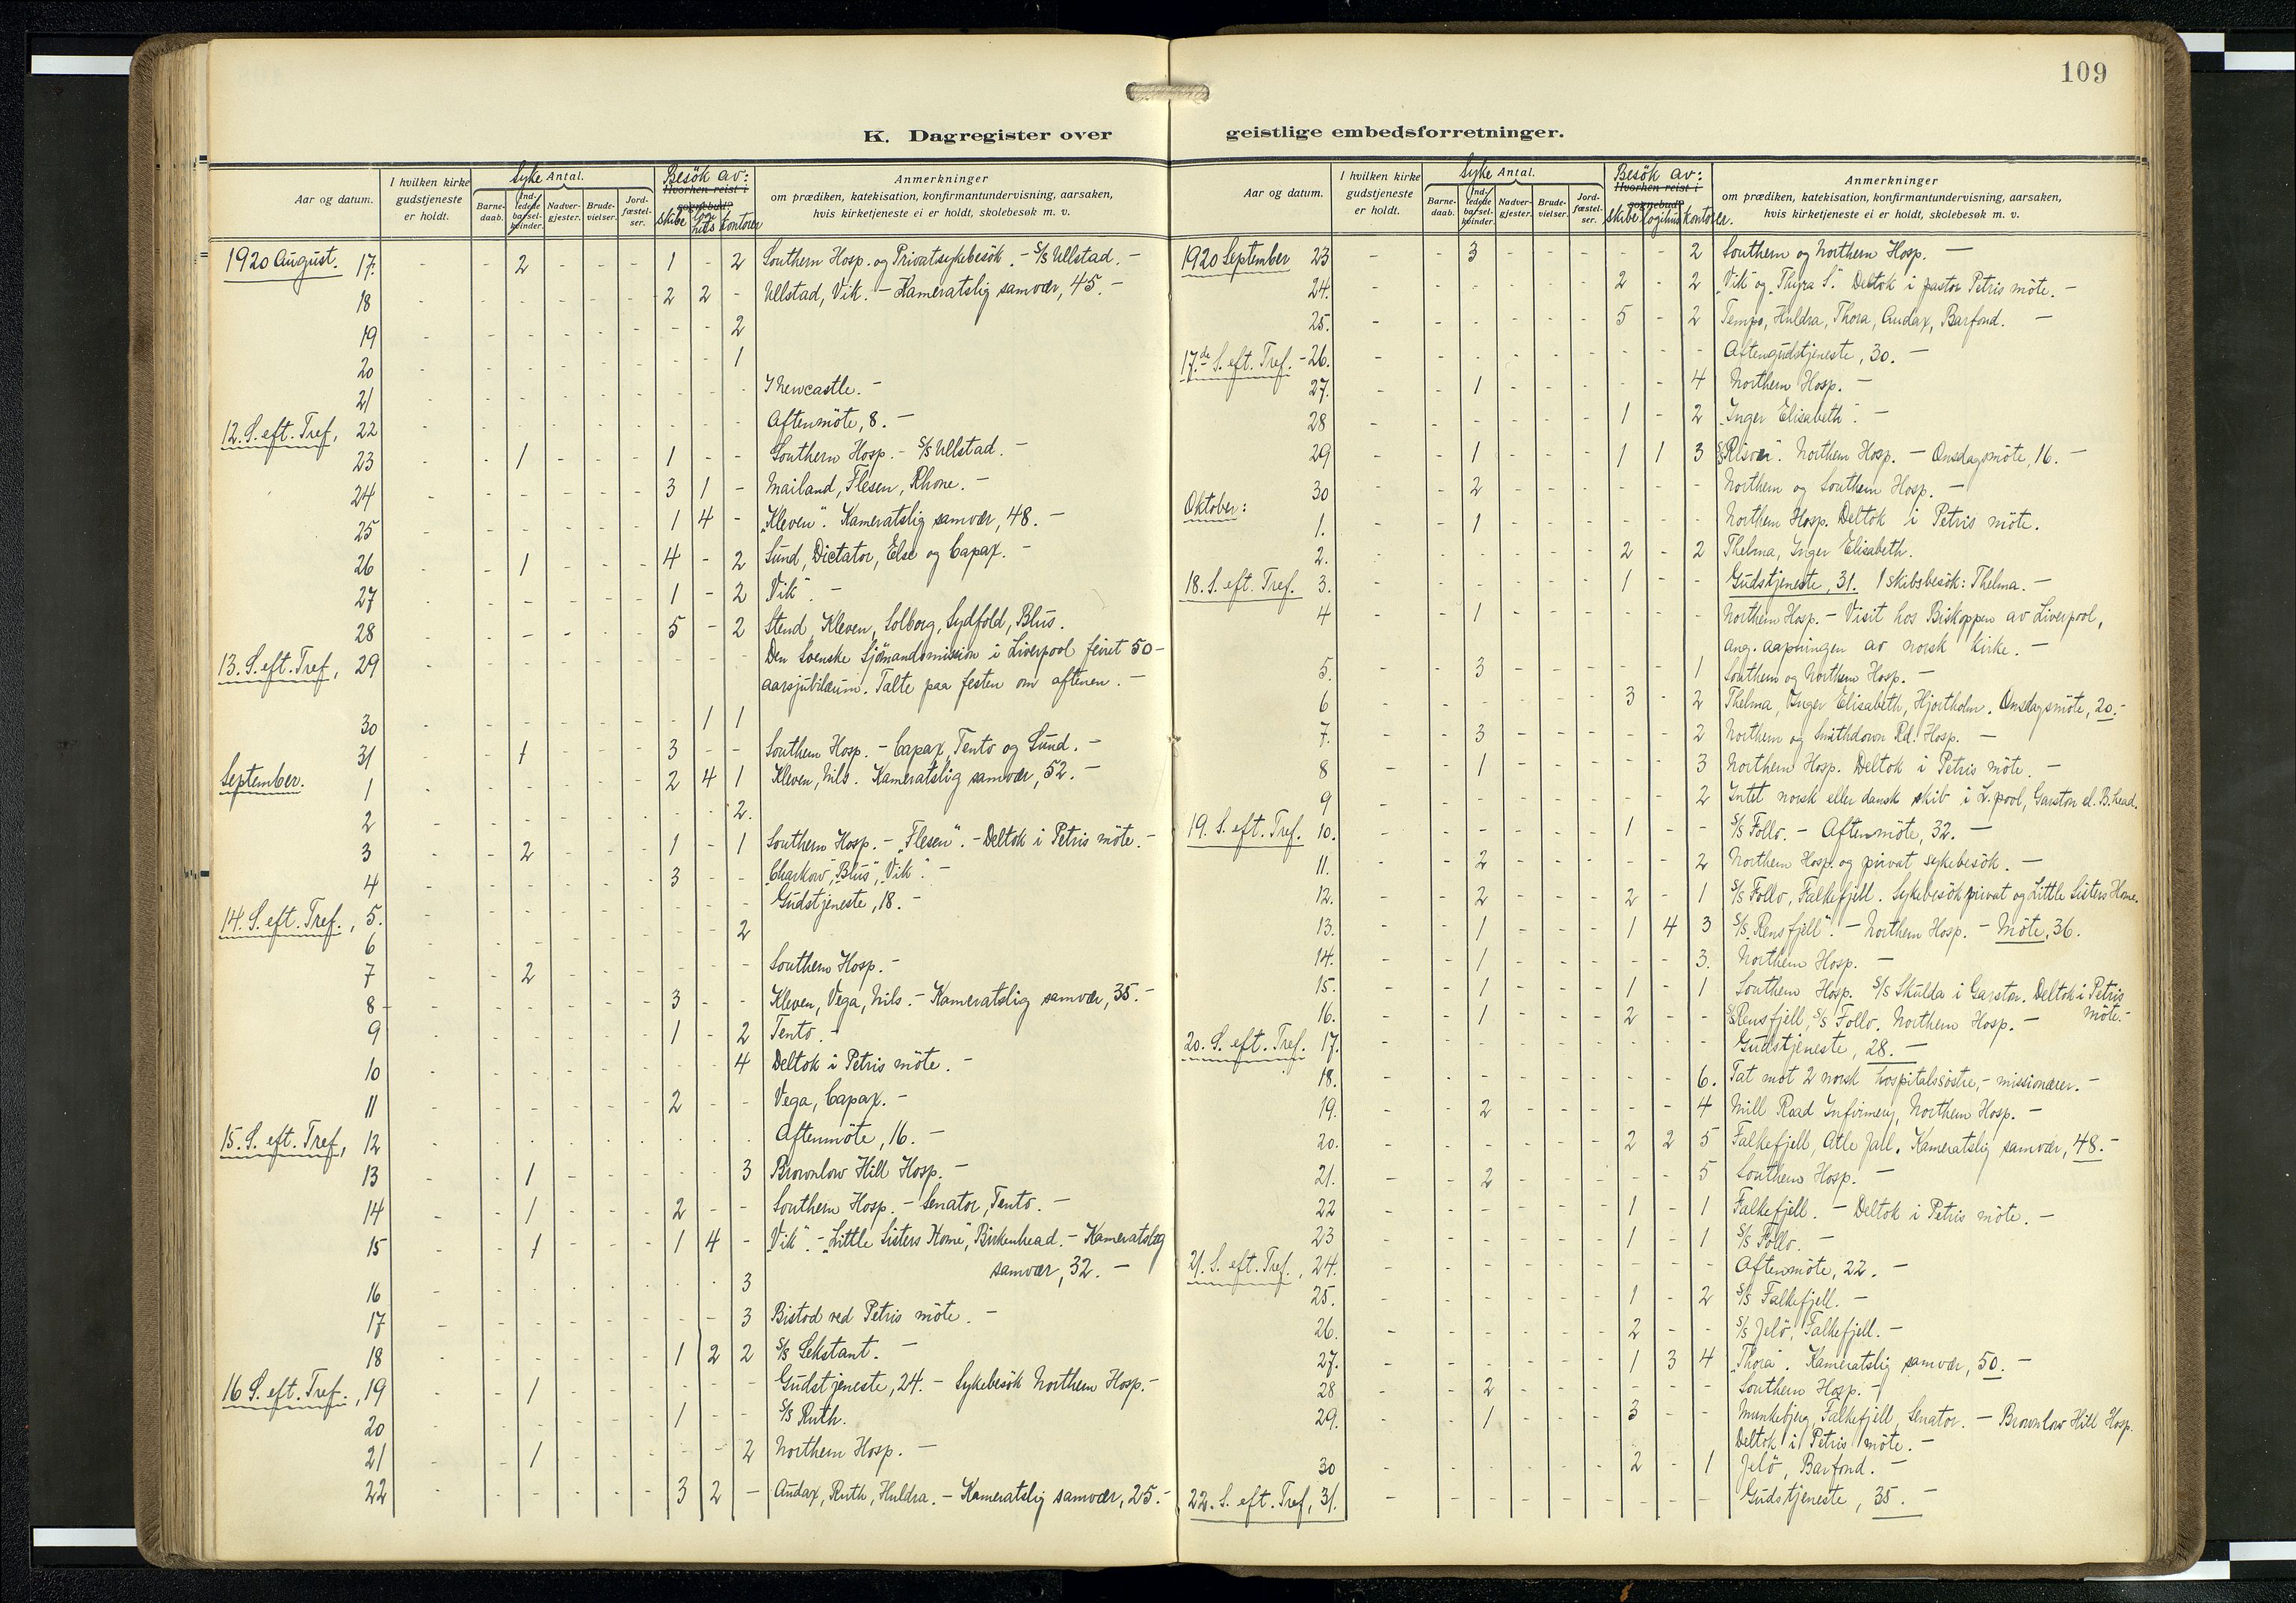 109
K. Dagregister over geistlige embedsforretninger.
Aar og datum. I hvilken kirke gudstjeneste er holdt. Syke Antal. Barnedaab. Indledede barselkvinder. Nadvergjester. Brudevielser. Jordfæstelser. Besök av: Hvorhen reist i sognebud? skibe logihus kontorer Anmerkninger om prædiken, katekisation, konfirmantundervisning, aarsaken, hvis kirketjeneste ei er holdt, skolebesøk m. v.
1920 August. 17. - - 2 - - - 1 - 2 Southern Hosp. og Privatsykebesök. - S/S Ullstad. -
18 - - - - - - 2 2 - Ullstad, Vik. - Kameratslig samvær, 45. -
19 - - - - - - - - 2
20 - - - - - - - - 1
21 - - - - - - - - - I Newcastle. -
12. S. eft. Tref, 22 - - - - - - - - - Aftenmöte, 8. -
23 - - 1 - - - 1 - - Southern Hosp. - S/S Ullstad. -
24 - - - - - - 3 1 - Mailand, Flesen, Rhone. -
25 - - - - - - 1 4 - "Kleven". Kameratslig samvær, 48. -
26 - - 1 - - - 4 - 2 Sund, Dictator, Else og Capax. -
27 - - - - - - 1 - 2 "Vik". -
28 - - - - - - 5 - 2 Stend, Kleven, Solborg, Sydfold, Blus.
13. S. eft. Tref, 29 - - - - - - - - - Den Svenske Sjömandsmission i Liverpool feiret 50-
aarsjubilæum. Talte paa festen om aftenen. -
30 - - - - - - - 1 1
31 - - 1 - - - 3 - - Southern Hosp. - Capax, Tento og Sund. -
September. 1 - - - - - - 2 4 1 Kleven, Nils. Kameratslig samvær, 52. -
2 - - - - - - - - 2.
3 - - 2 - - - 1 - 1 Southern Hosp. - "Flesen". - Deltok i Petris möte. -
4 - - - - - - 3 - - "Charkow", "Blus", "Vik". -
14. S. eft. Tref., 5. - - - - - - - - - Gudstjeneste, 18. -
6 - - - - - - - - 2
7 - - 2 - - - - - - Southern Hosp. -
8 - - - - - - 3 - - Kleven, Vega, Nils. - Kameratslig samvær, 35. -
9 - - - - - - 1 - 2 Tento. -
10 - - - - - - - - 4 Deltok i Petris möte. -
11 - - - - - - 2 - - Vega, Capax. -
15. S. eft. Tref, 12 - - - - - - - - - Aftenmöte, 16. -
13 - - 1 - - - - - 3 Brownlow Hill Hosp. -
14 - - 1 - - - 2 - - Southern Hosp. - Senator, Tento. -
15 - - 1 - - - 1 4 - "Vik". - "Little Sisters Home", Birkenhead. - Kameratslig
samvær, 32. -
16 - - - - - - - - 3
17 - - - - - - - - 3 Bistod ved Petris möte. -
18 - - - - - - 1 2 2 S/S Sekstant. -
16 S. eft. Tref., 19 - - 1 - - - - - - Gudstjeneste, 24. - Sykebesök Northern Hosp. -
20 - - - - - - 1 - - S/S Ruth.
21 - - 1 - - - - - 2 Northern Hosp. -
22 - - - - - - 3 2 - Audax, Ruth, Huldra. - Kameratslig samvær, 25. -
Aar og datum. I hvilken kirke gudstjeneste er holdt. Syke Antal. Barnedaab. Indledede barselkvinder. Nadvergjester. Brudevielser. Jordfæstelser. Besök av: Hvorhen reist i sognebud? skibe logihus kontorer. Anmerkninger om prædiken, katekisation, konfirmantundervisning, aarsaken, hvis kirketjeneste ei er holdt, skolebesøk m. v.
1920 September 23 - - 3 - - - - - 2 Southern og Northern Hosp. -
24. - - - - - - 2 - 2 "Vik" og "Thyra S." Deltok i pastor Petris möte. -
25. - - - - - - 5 - 2 Tempo, Huldra, Thora, Audax, Barfond. -
17.de S. eft. Tref. - 26. - - - - - - - - - Aftengudstjeneste, 30. -
27. - - 1 - - - - - 4 Northern Hosp. -
28 - - - - - - 1 - 2 "Inger Elisabeth". -
29 - - 1 - - - 1 1 3 S/S "Risvær". Northern Hosp. - Onsdagsmöte, 16. -
30 - - 2 - - - - - - Northern og Southern Hosp. -
Oktober: 1. - - 1 - - - - - - Northern Hosp. Deltok i Petris möte.
2. - - - - - - 2 - 2 Thelma, Inger Elisabeth.
18. S. eft. Tref. 3. - - - - - - 1 - - Gudstjeneste, 31. 1 skibsbesök: Thelma. -
4 - - 1 - - - - - - Northern Hosp. - Visit hos Biskoppen av Liverpool,
ang. aapningen av norsk kirke. -
5. - - 3 - - - - - 1 Southern og Northern Hosp. -
6 - - - - - - 3 - 2 Thelma, Inger Elisabeth, Hjortholm. Onsdagsmöte, 20. -
7. - - 3 - - - - - 2 Northern og Smithdown Rd. Hosp. -
8 - - 1 - - - - - 3 Northern Hosp. Deltok i Petris möte. -
9 - - - - - - - - 2 Intet norsk eller dansk skib i L.pool, Garston el. B.head.
19. S. eft. Tref. 10. - - - - - - 1 - - S/S Follo. - Aftenmöte, 32. -
11. - - 2 - - - - - 2 Northern Hosp. og privat sykebesök. -
12. - - 2 - - - 2 - 1 S/S Follo, Falkefjell. Sykebesök privat og Little Sisters Home.
13. - - 1 - - - 1 4 3 S/S "Rensfjell". - Northern Hosp. - Möte, 36.
14. - - 1 - - - - - 3. Northern Hosp. -
15. - - 1 - - - 1 - 1 Southern Hosp. S/S Skulda i Garston. Deltok i Petris
möte. -
16. - - 1 - - - 2 - - S/S Rensfjell, S/S Follo. Northern Hosp. -
20. S. eft. Tref. 17. - - - - - - - - - Gudstjeneste, 28. -
18. - - - - - - - - 6. Tat mot 2 norsk hospitalssöstre, - missionærer. -
19. - - 2 - - - - - 4 Mill Road Infirmery, Northern Hosp. -
20. - - - - - - 2 2 5 Falkefjell, Atle Jarl. Kameratslig samvær, 48. -
21. - - 2 - - - - - 5 Southern Hosp. -
22 - - - - - - 1 - 1 Falkefjell. - Deltok i Petris möte. -
23 - - - - - - 1 - 1 S/S Follo. -
21. S. eft. Tref., 24. - - - - - - - - - Aftenmöte, 22. -
25. - - - - - - 1 - 2 S/S Falkefjell. -
26. - - - - - - 2 - - S/S Jelö, Falkefjell. -
27. - - - - - - 1 3 4 "Thora". Kameratslig samvær, 50. -
28 - - 2 - - - - - - Southern Hosp. -
29. - - 1 - - - 3 - - Munkebjerg, Falkefjell, Senator. - Brownlow Hill Hosp.
Deltok i Petris möte. -
30 - - - - - - 2 - 1 Jelö, Barfond. -
22. S. eft. Tref, 31. - - - - - - - - - Gudstjeneste, 35. -